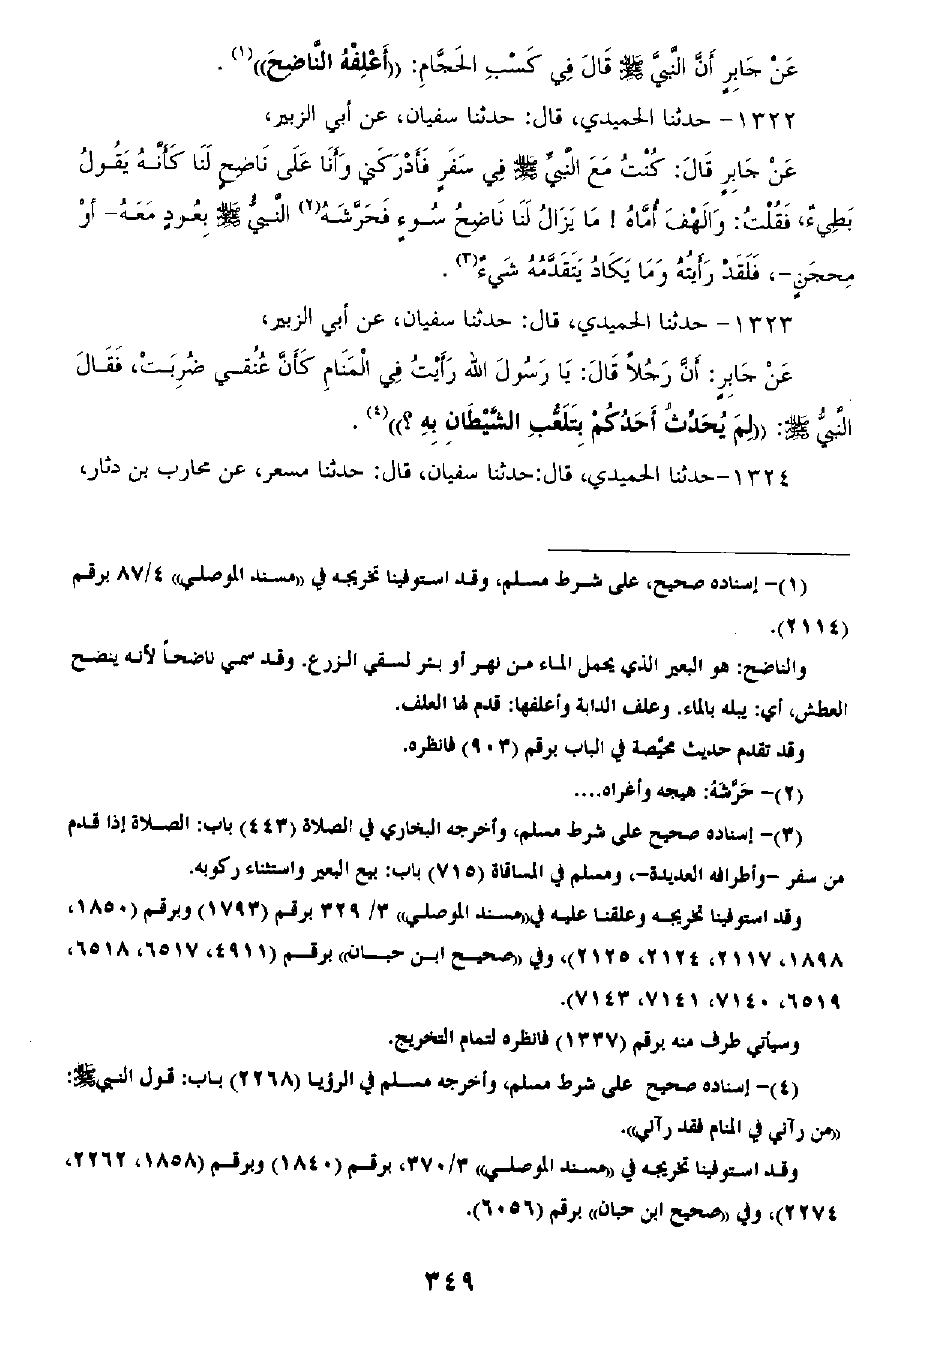 عَنْ جَابِرٍ أَنَّ النَّبِيَّ ﷺ قَالَ فِي كَسْبِ الحَجَّامِ: ((أَعْلِفْهُ النَّاضِحَ))(١) .
١٣٢٢- حدثنا الحميدي، قال: حدثنا سفيان، عن أبي الزبير،
عَنْ جَابِرٍ قَالَ: كُنْتُ مَعَ النَّبِيِّ ﷺ فِي سَفَرٍ فَأَدْرَكَنِي وَأَنَا عَلَى نَاضِحٍ لَنَا كَأَنَّهُ يَقُولُ
بَطِيءٌ، فَقُلْتُ: وَالَهْفَ أُمَّاهُ ! مَا يَزَالُ لَنَا نَاضِحُ سُوءٍ فَحَرَّشَهُ(٢) النَّبِيُّ ﷺ بِعُودٍ مَعَهُ- أوْ
مِحجَنٍ-، فَلَقَدْ رَأَيْتُهُ وَمَا يَكَادُ يَتَقَدَّمُهُ شَيءٌ(٣) .
١٣٢٣- حدثنا الحميدي، قال: حدثنا سفيان، عن أبي الزبير،
عَنْ جَابِرٍ: أَنَّ رَجُلاً قَالَ: يَا رَسُولَ الله رَأَيْتُ فِي الْمَنَامِ كَأَنَّ عُنُقِي ضُرِبَتْ، فَقَالَ
النَّبِيُّ ﷺ: ((لِمَ يُحَدِّثُ أَحَدُكُمْ بِتَلَعُّبِ الشَّيْطَانِ بِهِ ؟))(٤) .
١٣٢٤-حدثنا الحميدي، قال:حدثنا سفيان، قال: حدثنا مسعر، عن محارب بن دثار،
(١)- إسناده صحيح، على شرط مسلم، وقد استوفينا تخريجه في ((مسند الموصلي)) ٨٧/٤ برقم
(٢١١٤).
والناضح: هو البعير الذي يحمل الماء من نهر أو بئر لسقي الزرع. وقد سمي ناضحاً لأنه ينضح
العطش، أي: يبله بالماء. وعلف الدابة وأعلفها: قدم لها العلف.
وقد تقدم حديث محيَّصة في الباب برقم (٩٠٣) فانظره.
(٢)- حَرَّشَهُ: هيجه وأغراه....
(٣)- إسناده صحيح على شرط مسلم، وأخرجه البخاري في الصلاة (٤٤٣) باب: الصلاة إذا قدم
من سفر -وأطرافه العديدة-، ومسلم في المساقاة (٧١٥) باب: بيع البعير واستثناء ركوبه.
وقد استوفينا تخريجه وعلقنا عليه في((مسند الموصلي)) ٣/ ٣٢٩ برقم (١٧٩٣) وبرقم (١٨٥٠،
١٨٩٨، ٢١١٧، ٢١٢٤، ٢١٢٥)، وفي ((صحيح ابن حبان)) برقم (٤٩١١، ٦٥١٧، ٦٥١٨،
٦٥١٩، ٧١٤٠، ٧١٤١، ٧١٤٣).
وسيأتي طرف منه برقم (١٣٣٧) فانظره لتمام التخريج.
(٤)- إسناده صحيح على شرط مسلم، وأخرجه مسلم في الرؤيا (٢٢٦٨) باب: قول النبيﷺ:
((من رآني في المنام فقد رآني)).
وقد استوفينا تخريجه في ((مسند الموصلي)) ٣٧٠/٣، برقم (١٨٤٠) وبرقم (١٨٥٨، ٢٢٦٢،
٢٢٧٤)، وفي ((صحيح ابن حبان)) برقم (٦٠٥٦).
٣٤٩